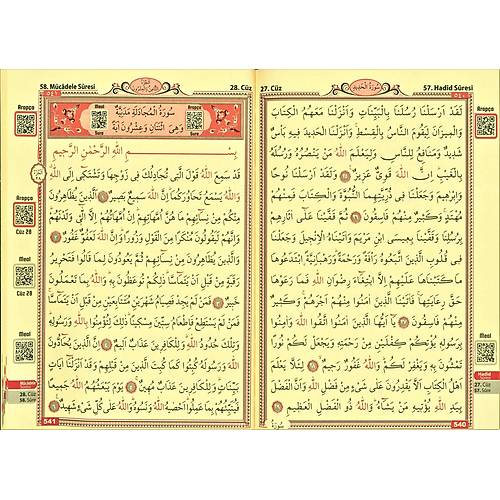 57. Hadid Sûresi
27. Cüz
٥٤٠
سُورَةُ الْحَدِيدِ
Arapça
لَقَدْ اَرْسَلْنَا رُسُلَنَا بِالْبَيِّنَاتِ وَاَنْزَلْنَا مَعَهُمُ الْكِتَابَ
وَالْمِيزَانَ لِيَقُومَ النَّاسُ بِالْقِسْطِ وَاَنْزَلْنَا الْحَدِيدَ فِيهِ بَأْسٌ
شَدِيدٌ وَمَنَافِعُ لِلنَّاسِ وَلِيَعْلَمَ اللّٰهُ مَنْ يَنْصُرُهُ وَرُسُلَهُ
بِالْغَيْبِ اِنَّ اللّٰهَ قَوِيٌّ عَزِيزٌ ﴿٢٥﴾ وَلَقَدْ اَرْسَلْنَا نُوحًا
وَاِبْرٰهِيمَ وَجَعَلْنَا فِي ذُرِّيَّتِهِمَا النُّبُوَّةَ وَالْكِتَابَ فَمِنْهُمْ
مُهْتَدٍ وَكَثِيرٌ مِنْهُمْ فَاسِقُونَ ﴿٢٦﴾ ثُمَّ قَفَّيْنَا عَلٰٓى اٰثَارِهِمْ
بِرُسُلِنَا وَقَفَّيْنَا بِعِيسَى ابْنِ مَرْيَمَ وَاٰتَيْنَاهُ الْاِنْجِيلَ وَجَعَلْنَا
فِي قُلُوبِ الَّذِينَ اتَّبَعُوهُ رَأْفَةً وَرَحْمَةً وَرَهْبَانِيَّةً ابْتَدَعُوهَا
مَا كَتَبْنَاهَا عَلَيْهِمْ اِلَّا ابْتِغَاءَ رِضْوَانِ اللّٰهِ فَمَا رَعَوْهَا
حَقَّ رِعَايَتِهَا فَاٰتَيْنَا الَّذِينَ اٰمَنُوا مِنْهُمْ اَجْرَهُمْ وَكَثِيرٌ
مِنْهُمْ فَاسِقُونَ ﴿٢٧﴾ يَا اَيُّهَا الَّذِينَ اٰمَنُوا اتَّقُوا اللّٰهَ وَاٰمِنُوا
بِرَسُولِهِ يُؤْتِكُمْ كِفْلَيْنِ مِنْ رَحْمَتِهِ وَيَجْعَلْ لَكُمْ نُورًا
تَمْشُونَ بِهِ وَيَغْفِرْ لَكُمْ وَاللّٰهُ غَفُورٌ رَحِيمٌ ﴿٢٨﴾ لِئَلَّا يَعْلَمَ
اَهْلُ الْكِتَابِ اَلَّا يَقْدِرُونَ عَلٰى شَيْءٍ مِنْ فَضْلِ اللّٰهِ وَاَنَّ الْفَضْلَ
بِيَدِ اللّٰهِ يُؤْتِيهِ مَنْ يَشَاءُ وَاللّٰهُ ذُو الْفَضْلِ الْعَظِيمِ ﴿٢٩﴾
Meal
Hadid
27. Cüz
57. Sûre
540
58. Mücâdele Sûresi
28. Cüz
٥٤١
Arapça
Meal
Sure
Arapça
Sure
سُورَةُ الْمُجَادَلَةِ مَدَنِيَّةٌ
وَهِيَ اثْنَتَانِ وَعِشْرُونَ اٰيَةً
بِسْمِ اللّٰهِ الرَّحْمٰنِ الرَّحِيمِ
قَدْ سَمِعَ اللّٰهُ قَوْلَ الَّتِي تُجَادِلُكَ فِي زَوْجِهَا وَتَشْتَكِي اِلَى اللّٰهِ
وَاللّٰهُ يَسْمَعُ تَحَاوُرَكُمَا اِنَّ اللّٰهَ سَمِيعٌ بَصِيرٌ ﴿١﴾ اَلَّذِينَ يُظَاهِرُونَ
مِنْكُمْ مِنْ نِسَائِهِمْ مَا هُنَّ اُمَّهَاتِهِمْ اِنْ اُمَّهَاتُهُمْ اِلَّا الّٰٓئِي وَلَدْنَهُمْ
وَاِنَّهُمْ لَيَقُولُونَ مُنْكَرًا مِنَ الْقَوْلِ وَزُورًا وَاِنَّ اللّٰهَ لَعَفُوٌّ غَفُورٌ ﴿٢﴾
وَالَّذِينَ يُظَاهِرُونَ مِنْ نِسَائِهِمْ ثُمَّ يَعُودُونَ لِمَا قَالُوا فَتَحْرِيرُ
رَقَبَةٍ مِنْ قَبْلِ اَنْ يَتَمَاسَّا ذٰلِكُمْ تُوعَظُونَ بِهِ وَاللّٰهُ بِمَا تَعْمَلُونَ
خَبِيرٌ ﴿٣﴾ فَمَنْ لَمْ يَجِدْ فَصِيَامُ شَهْرَيْنِ مُتَتَابِعَيْنِ مِنْ قَبْلِ اَنْ يَتَمَاسَّا
فَمَنْ لَمْ يَسْتَطِعْ فَاِطْعَامُ سِتِّينَ مِسْكِينًا ذٰلِكَ لِتُؤْمِنُوا بِاللّٰهِ وَرَسُولِهِ
وَتِلْكَ حُدُودُ اللّٰهِ وَلِلْكَافِرِينَ عَذَابٌ اَلِيمٌ ﴿٤﴾ اِنَّ الَّذِينَ يُحَادُّونَ
اللّٰهَ وَرَسُولَهُ كُبِتُوا كَمَا كُبِتَ الَّذِينَ مِنْ قَبْلِهِمْ وَقَدْ اَنْزَلْنَا اٰيَاتٍ
بَيِّنَاتٍ وَلِلْكَافِرِينَ عَذَابٌ مُهِينٌ ﴿٥﴾ يَوْمَ يَبْعَثُهُمُ اللّٰهُ جَمِيعًا
فَيُنَبِّئُهُمْ بِمَا عَمِلُوا اَحْصٰيهُ اللّٰهُ وَنَسُوهُ وَاللّٰهُ عَلٰى كُلِّ شَيْءٍ شَهِيدٌ ﴿٦﴾
Arapça
Cüz 28
Meal
Cüz 28
Meal
Mücâdele
28. Cüz
58. Sûre
541